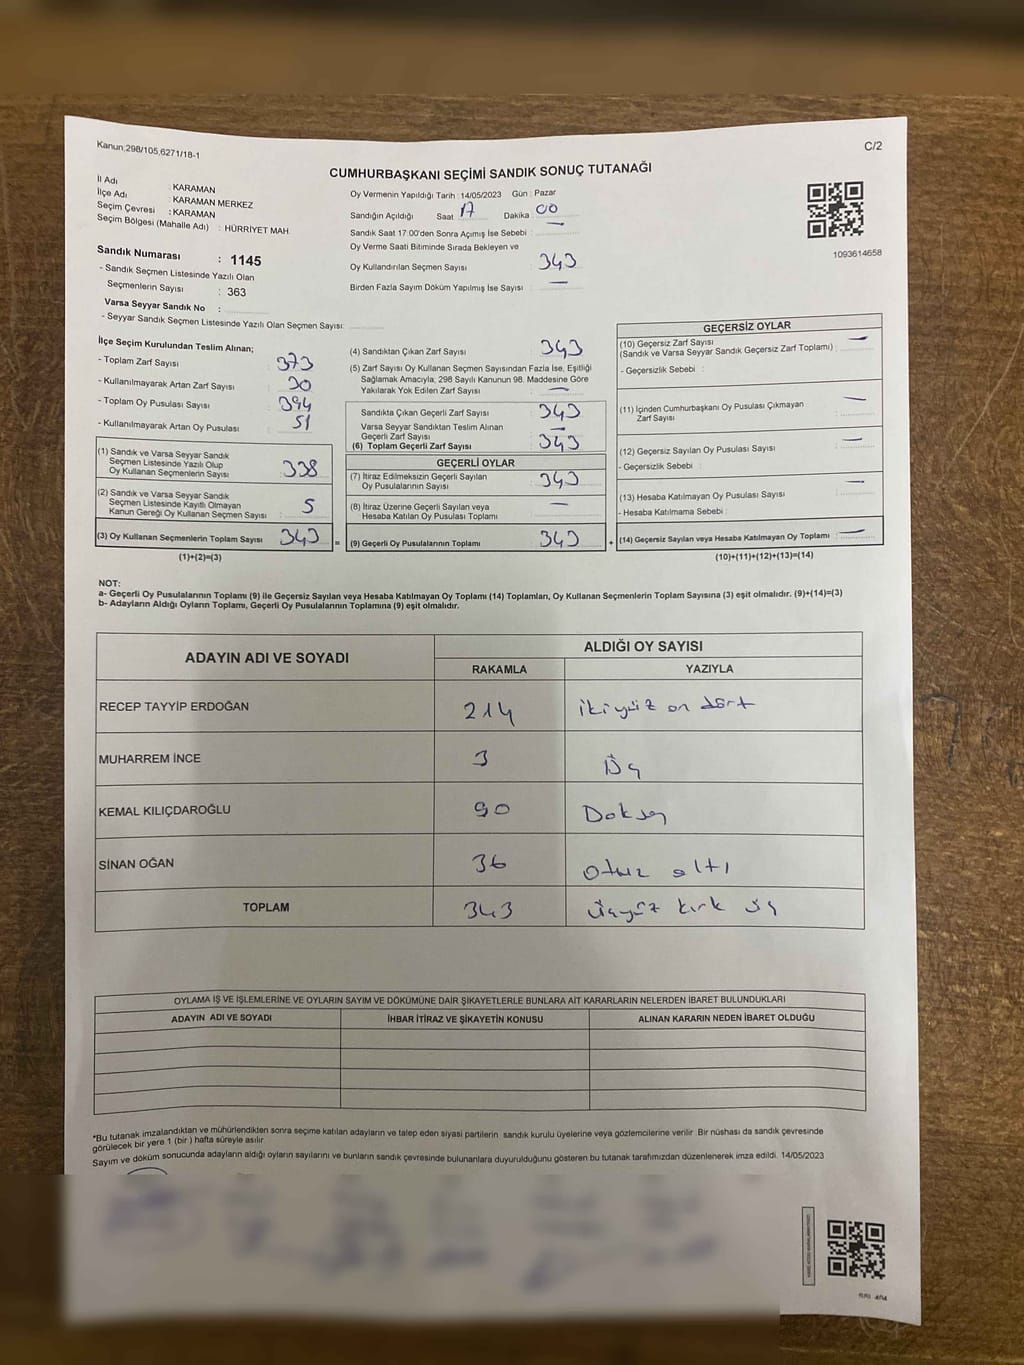 Kanun;298/105,6271/18-1
C/2
CUMHURBAŞKANI SEÇİMİ SANDIK SONUÇ TUTANAĞI
İl Adı : KARAMAN
İlçe Adı : KARAMAN MERKEZ
Seçim Çevresi : KARAMAN
Seçim Bölgesi (Mahalle Adı) : HÜRRİYET MAH.
Oy Vermenin Yapıldığı Tarih : 14/05/2023 Gün : Pazar
Sandığın Açıldığı Saat 17 Dakika 00
Sandık Saat 17.00'den Sonra Açımış İse Sebebi : —
Oy Verme Saati Bitiminde Sırada Bekleyen ve
Oy Kullandırılan Seçmen Sayısı : 343
Birden Fazla Sayım Döküm Yapılmış İse Sayısı : —
1093614658
Sandık Numarası : 1145
- Sandık Seçmen Listesinde Yazılı Olan
Seçmenlerin Sayısı : 363
Varsa Seyyar Sandık No :
- Seyyar Sandık Seçmen Listesinde Yazılı Olan Seçmen Sayısı:
İlçe Seçim Kurulundan Teslim Alınan;
- Toplam Zarf Sayısı : 373
- Kullanılmayarak Artan Zarf Sayısı : 30
- Toplam Oy Pusulası Sayısı : 394
- Kullanılmayarak Artan Oy Pusulası : 51
(1) Sandık ve Varsa Seyyar Sandık
Seçmen Listesinde Yazılı Olup
Oy Kullanan Seçmenlerin Sayısı : 338
(2) Sandık ve Varsa Seyyar Sandık
Seçmen Listesinde Kayıtlı Olmayan
Kanun Gereği Oy Kullanan Seçmen Sayısı : 5
(3) Oy Kullanan Seçmenlerin Toplam Sayısı : 343
(1)+(2)=(3)
=
(4) Sandıktan Çıkan Zarf Sayısı : 343
(5) Zarf Sayısı Oy Kullanan Seçmen Sayısından Fazla İse, Eşitliği
Sağlamak Amacıyla; 298 Sayılı Kanunun 98. Maddesine Göre
Yakılarak Yok Edilen Zarf Sayısı : —
Sandıkta Çıkan Geçerli Zarf Sayısı : 343
Varsa Seyyar Sandıktan Teslim Alınan
Geçerli Zarf Sayısı : —
(6) Toplam Geçerli Zarf Sayısı : 343
GEÇERLİ OYLAR
(7) İtiraz Edilmeksizin Geçerli Sayılan
Oy Pusulalarının Sayısı : 343
(8) İtiraz Üzerine Geçerli Sayılan veya
Hesaba Katılan Oy Pusulası Toplamı : —
(9) Geçerli Oy Pusulalarının Toplamı : 343
+
GEÇERSİZ OYLAR
(10) Geçersiz Zarf Sayısı : —
(Sandık ve Varsa Seyyar Sandık Geçersiz Zarf Toplamı)
- Geçersizlik Sebebi :
(11) İçinden Cumhurbaşkanı Oy Pusulası Çıkmayan
Zarf Sayısı : —
(12) Geçersiz Sayılan Oy Pusulası Sayısı : —
- Geçersizlik Sebebi :
(13) Hesaba Katılmayan Oy Pusulası Sayısı : —
- Hesaba Katılmama Sebebi :
(14) Geçersiz Sayılan veya Hesaba Katılmayan Oy Toplamı : —
(10)+(11)+(12)+(13)=(14)
NOT:
a- Geçerli Oy Pusulalarının Toplamı (9) ile Geçersiz Sayılan veya Hesaba Katılmayan Oy Toplamı (14) Toplamları, Oy Kullanan Seçmenlerin Toplam Sayısına (3) eşit olmalıdır. (9)+(14)=(3)
b- Adayların Aldığı Oyların Toplamı, Geçerli Oy Pusulalarının Toplamına (9) eşit olmalıdır.
ADAYIN ADI VE SOYADI
ALDIĞI OY SAYISI
RAKAMLA YAZIYLA
RECEP TAYYİP ERDOĞAN 214 ikiyüz on dört
MUHARREM İNCE 3 Üç
KEMAL KILIÇDAROĞLU 90 Doksan
SİNAN OĞAN 36 Otuz altı
TOPLAM 343 Üçyüz kırk üç
OYLAMA İŞ VE İŞLEMLERİNE VE OYLARIN SAYIM VE DÖKÜMÜNE DAİR ŞİKAYETLERLE BUNLARA AİT KARARLARIN NELERDEN İBARET BULUNDUKLARI
ADAYIN ADI VE SOYADI İHBAR İTİRAZ VE ŞİKAYETİN KONUSU ALINAN KARARIN NEDEN İBARET OLDUĞU
*Bu tutanak imzalandıktan ve mühürlendikten sonra seçime katılan adayların ve talep eden siyasi partilerin sandık kurulu üyelerine veya gözlemcilerine verilir. Bir nüshası da sandık çevresinde
görülecek bir yere 1 (bir ) hafta süreyle asılır.
Sayım ve döküm sonucunda adayların aldığı oyların sayılarını ve bunların sandık çevresinde bulunanlara duyurulduğunu gösteren bu tutanak tarafımızdan düzenlenerek imza edildi. 14/05/2023